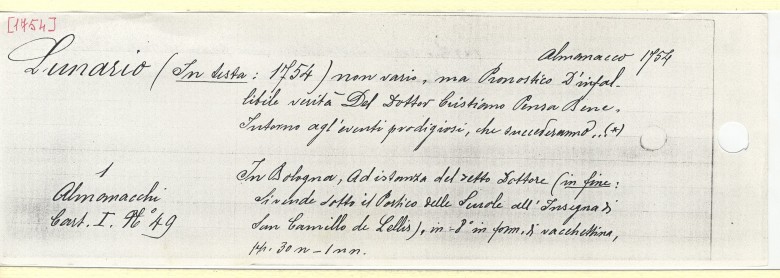 [1754]
Almanacco 1754
Lunario (In testa: 1754) non vario, ma Pronostico D'infal-
libile verità Del Dottor Cristiano Pensa Bene,
Intorno agl'eventi prodigiosi, che succederanno..(*)
1
Almanacchi
Cart. I. N.º 49
In Bologna, Ad istanza del detto Dottore (in fine:
Si vende Sotto il Portico delle Scuole all'Insegna di
San Camillo de Lellis), in-8º in form. di vacchettina,
pp. 30 n - 1 nn.